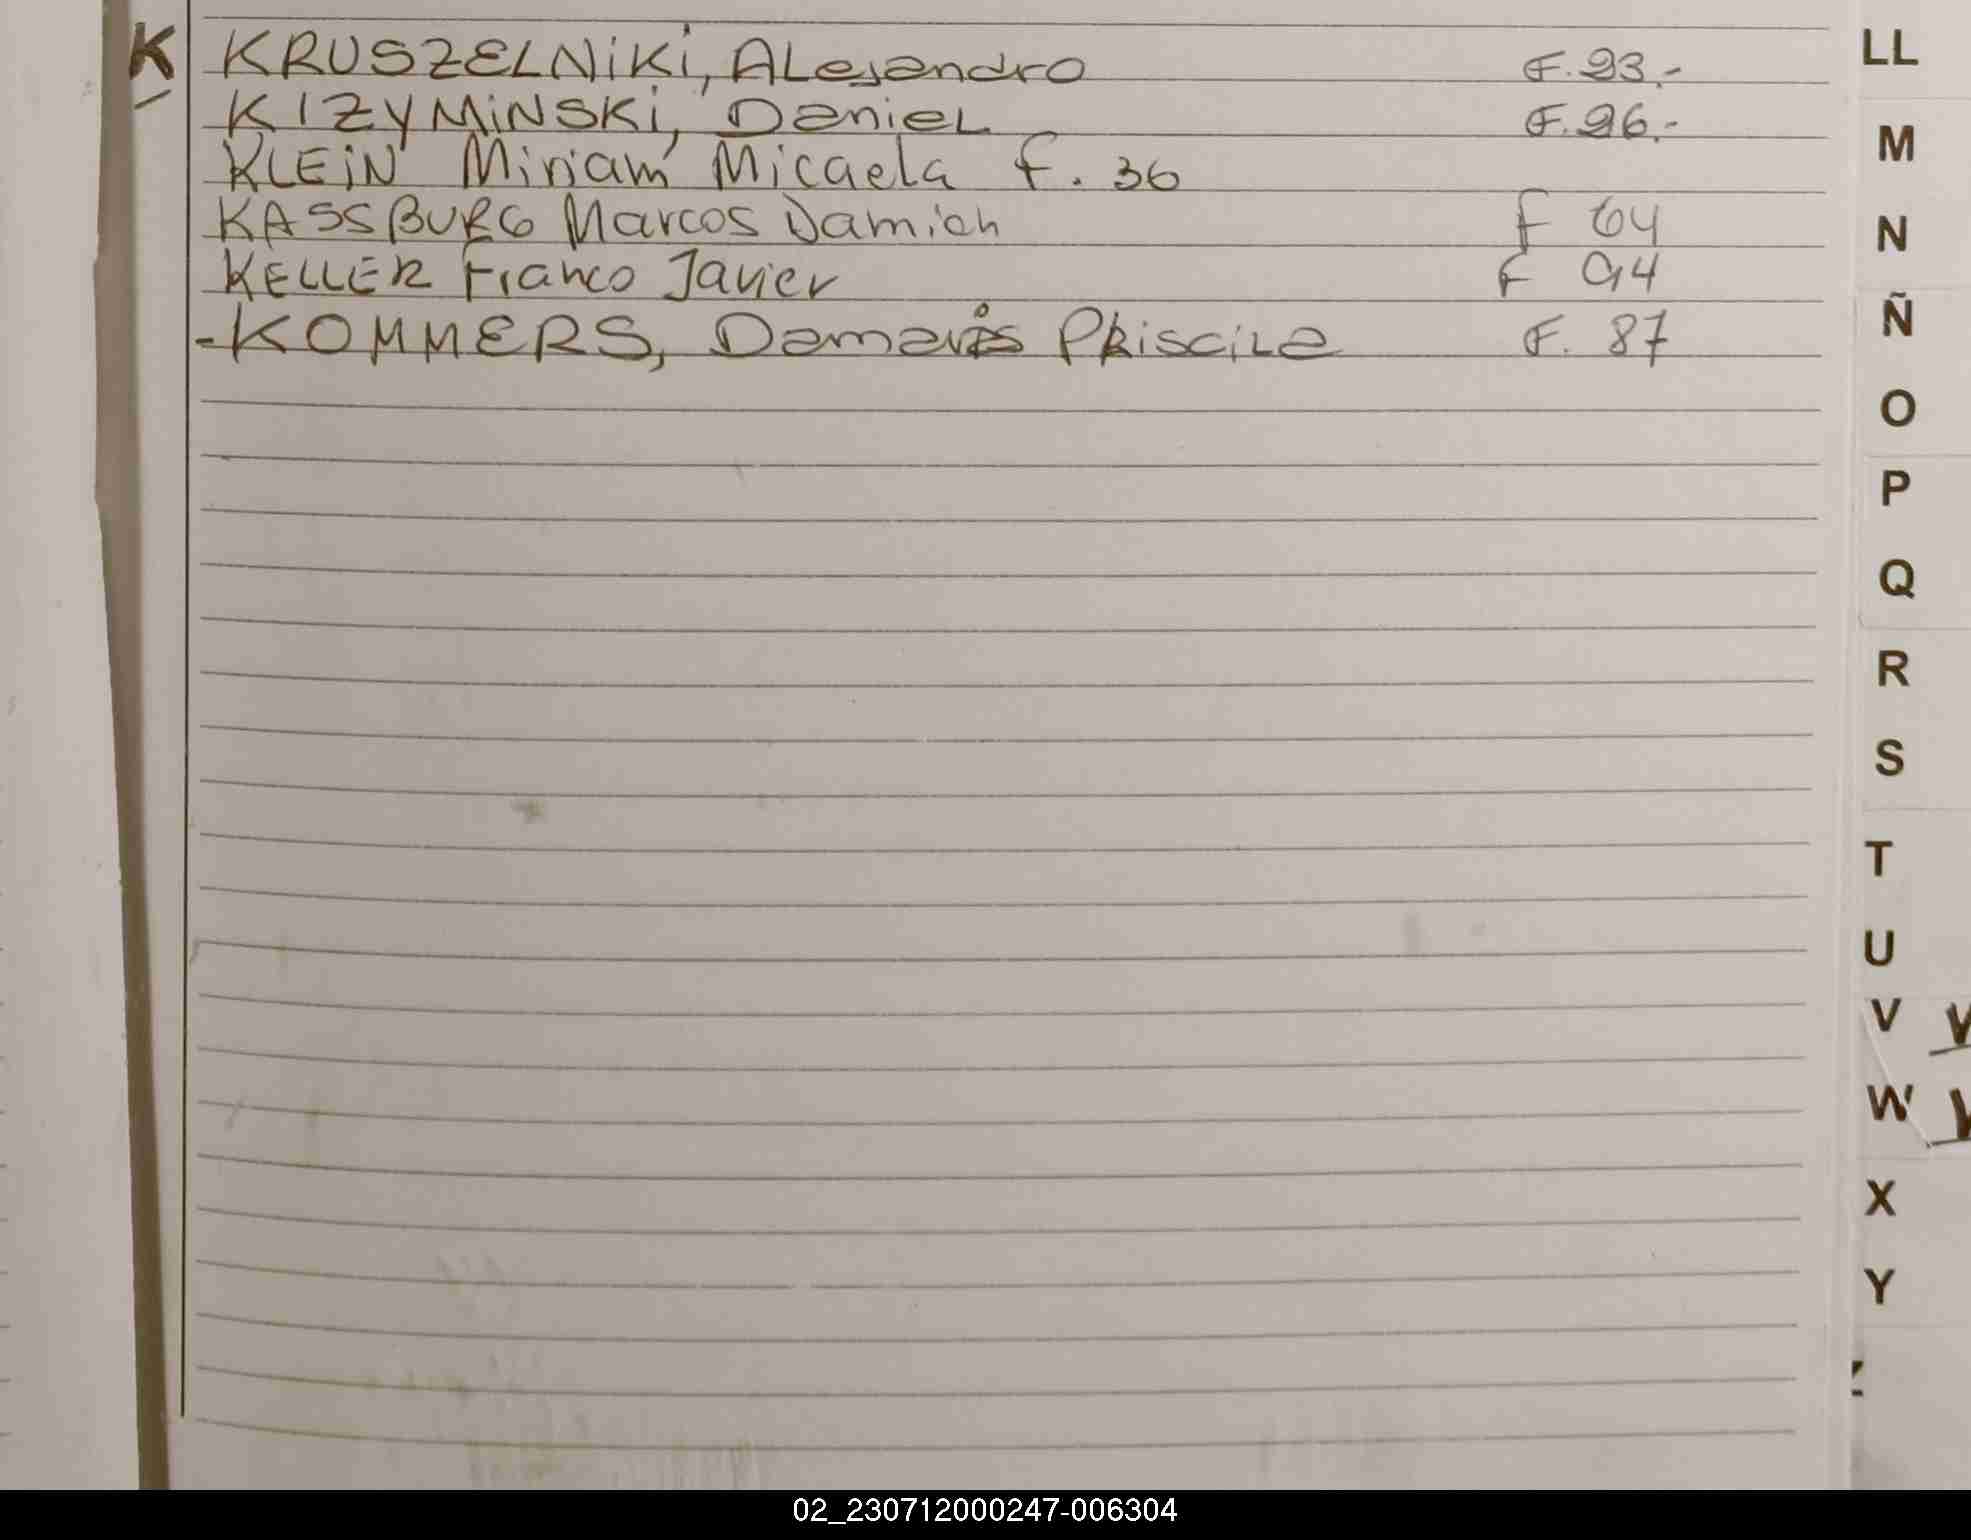 K
KRUSZELNIKI, ALejandro F. 93.-
KIZYMINSKI, DanieL F. 96.-
KLEIN Miriam Micaela f. 36
KASSBURG Marcos Damian F 64
KELLER Franco Javier F 94
-KOMMERS, Damaris PRisciLa F. 87
LL
M
N
Ñ
O
P
Q
R
S
T
U
V
W
X
Y
02_230712000247-006304